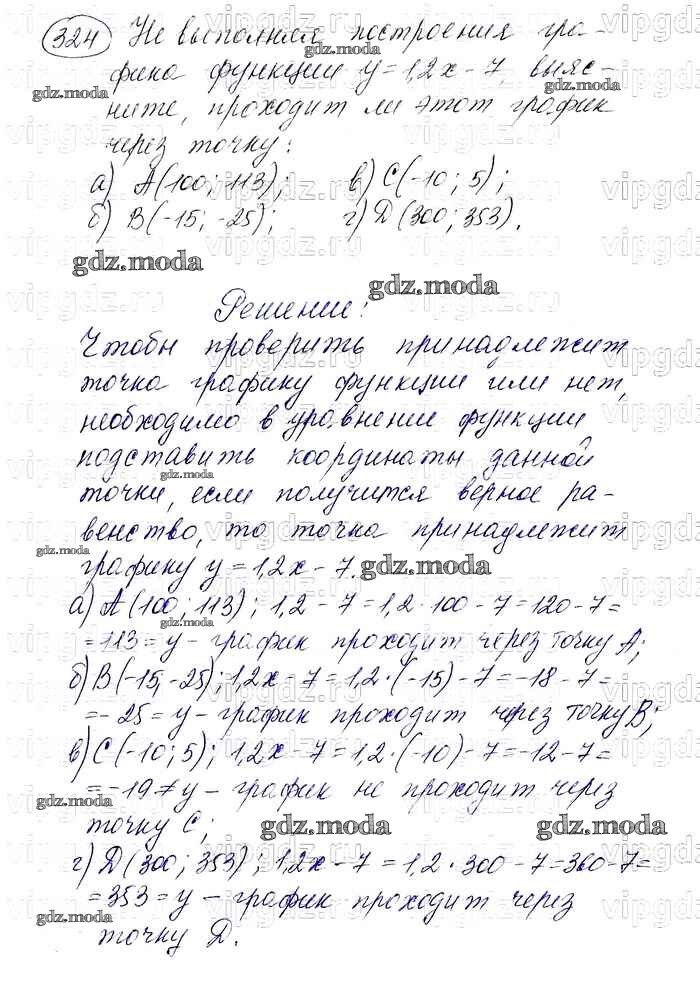 324 Не выполняя построения гра-
фика функции y = 1,2x - 7, выяс-
ните, проходит ли этот график
через точку:
а) A(100; 113); в) C(-10; 5);
б) B(-15; -25); г) D(300; 353).
Решение:
Чтобы проверить принадлежит
точка графику функции или нет,
необходимо в уравнение функции
подставить координаты данной
точки, если получится верное ра-
венство, то точка принадлежит
графику y = 1,2x - 7.
а) A(100; 113); 1,2 - 7 = 1,2 · 100 - 7 = 120 - 7 =
= 113 = y - график проходит через точку A;
б) B(-15; -25); 1,2x - 7 = 1,2 · (-15) - 7 = -18 - 7 =
= -25 = y - график проходит через точку B;
в) C(-10; 5); 1,2x - 7 = 1,2 · (-10) - 7 = -12 - 7 =
= -19 ≠ y - график не проходит через
точку C;
г) D(300; 353); 1,2x - 7 = 1,2 · 300 - 7 = 360 - 7 =
= 353 = y - график проходит через
точку D.
gdz.moda
vipgdz.ru